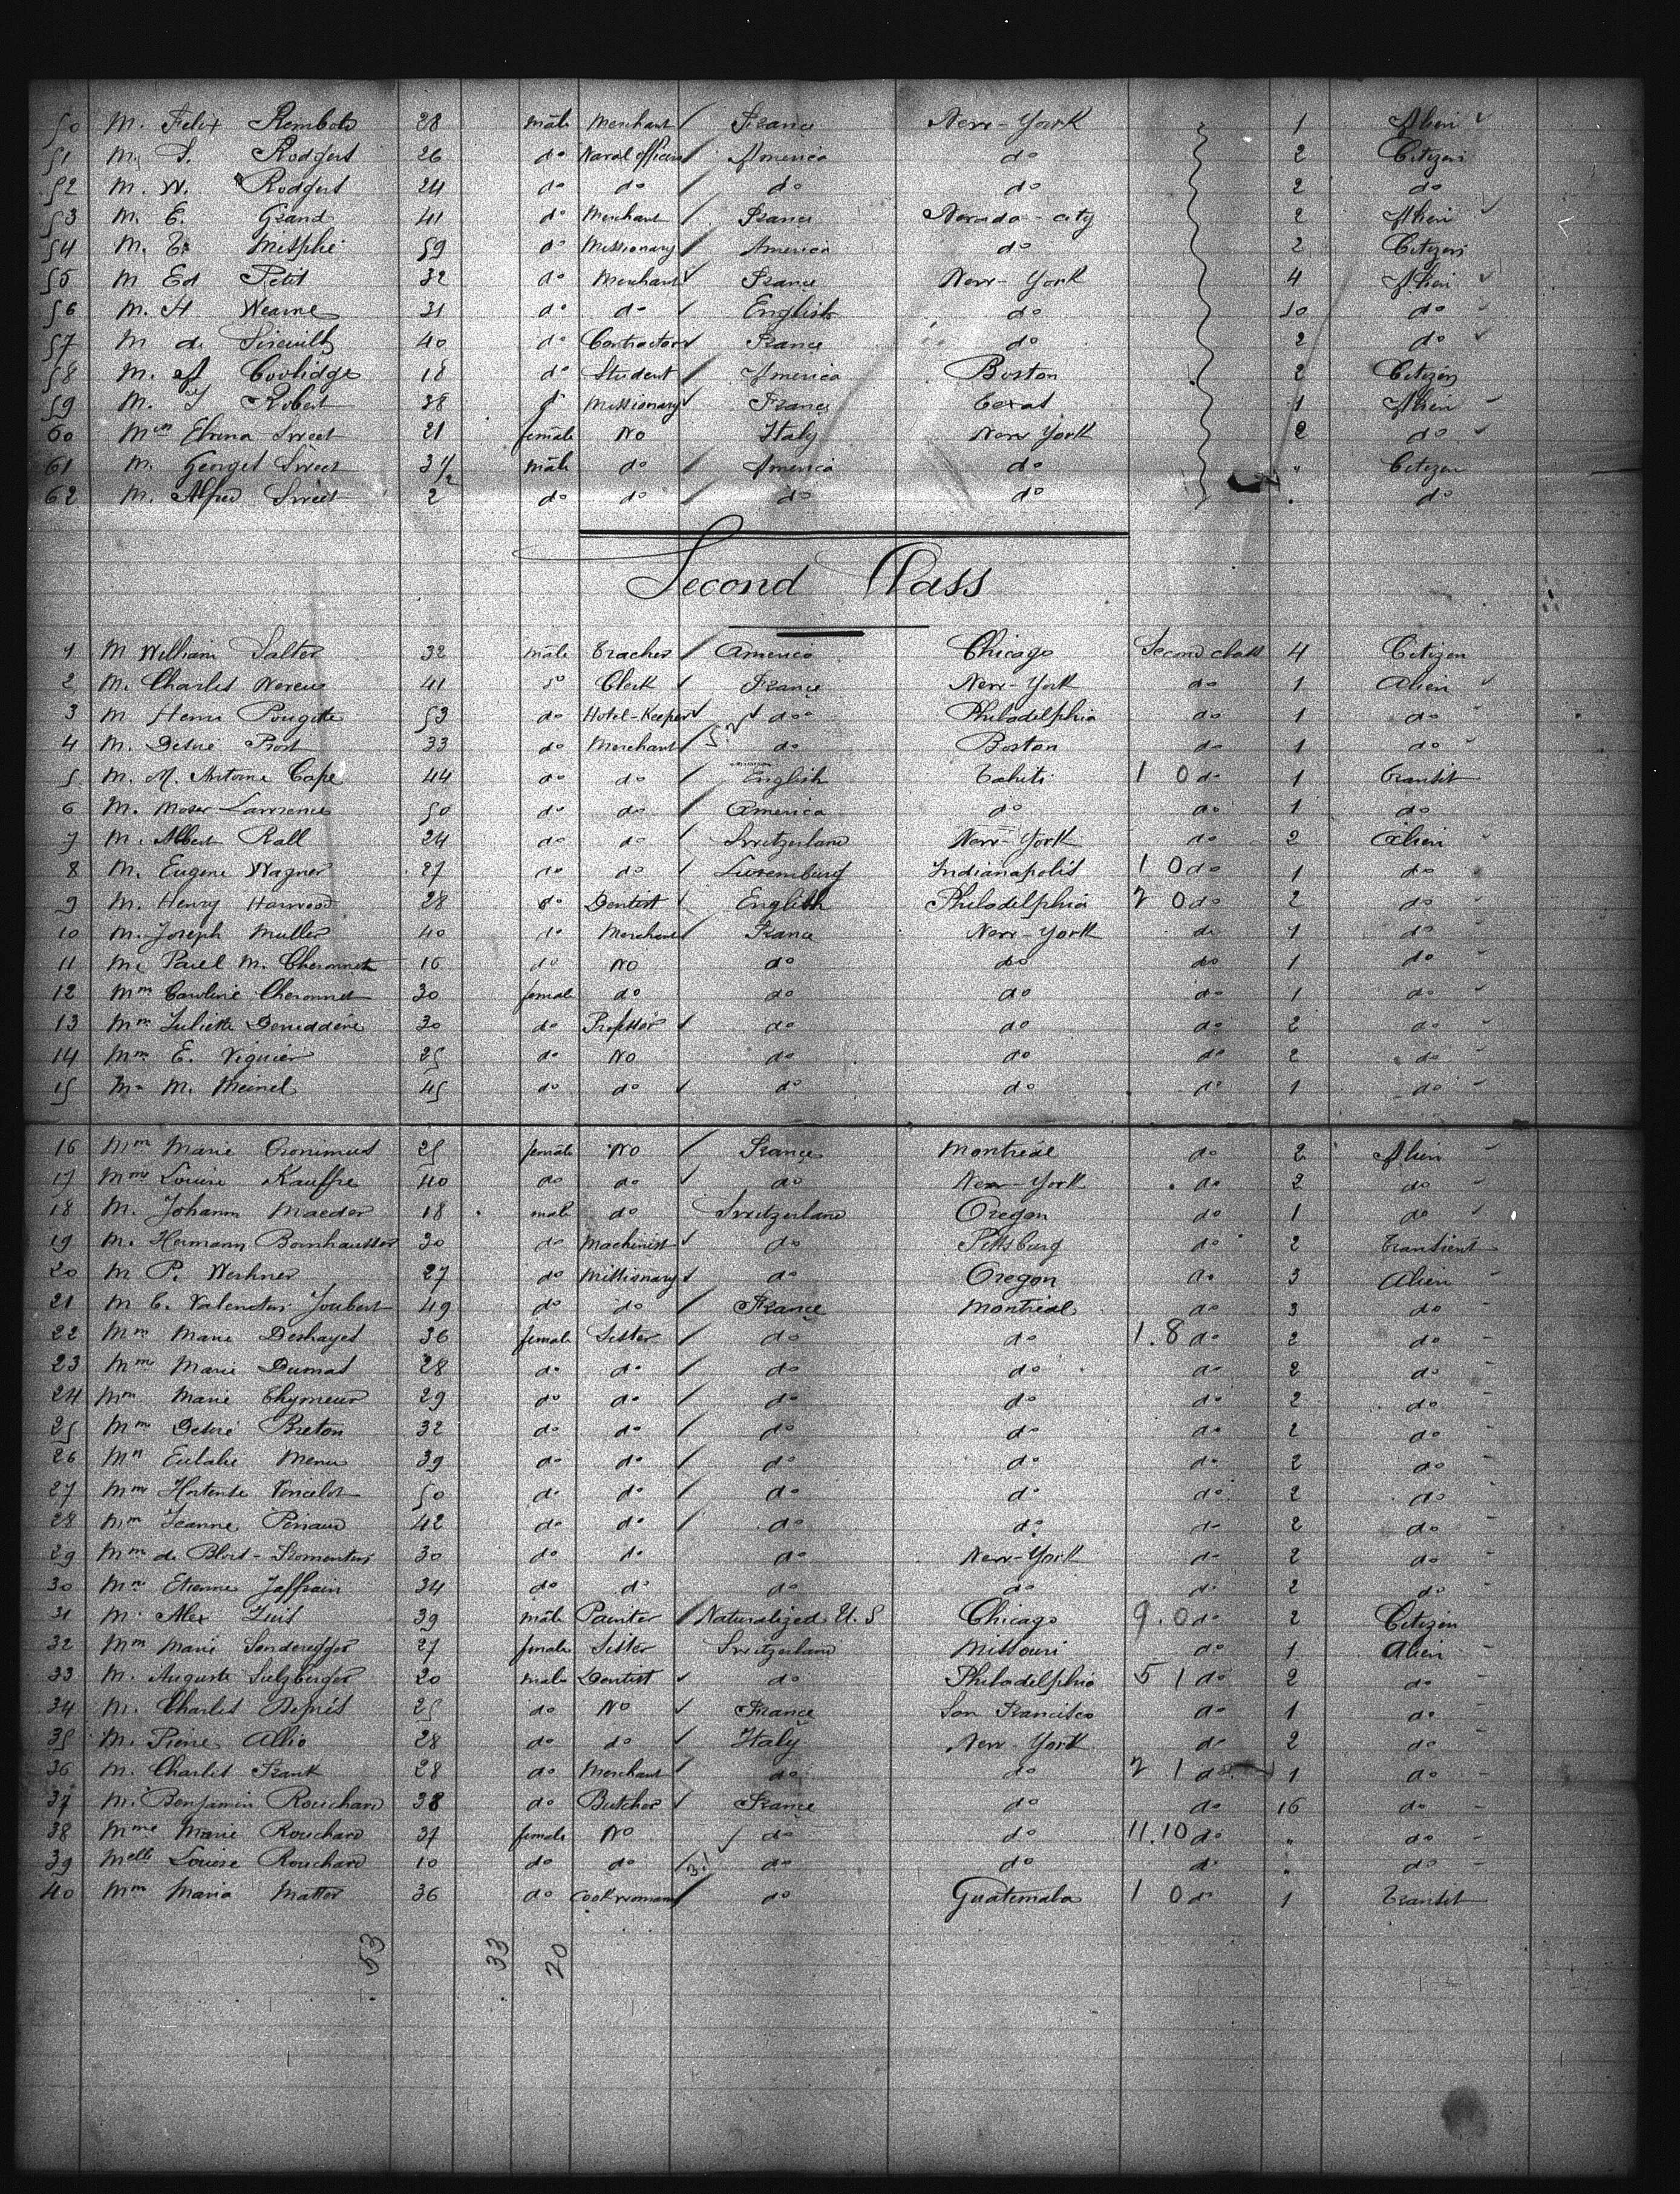 50 M. Felix Rembold 28 male Merchant France New-York 1 Alien
51 M. S. Rodgers 26 do Naval officer America do 2 Citizen
52 M. W. Rodgers 24 do do do do 2 do
53 M. E. Grand 41 do Merchant France Nevada-city 2 Alien
54 M. 59 do Missionary America do 2 Citizen
55 M Ed Petit 32 do Merchant France New-York 4 Alien
56 M. H Wearne 31 do do English do 10 do
57 M de 40 do Contractor France do 2 do
58 M. Coolidge 18 do Student America Boston 2 Citizen
59 M. J Robert 38 do Missionary France Texas 1 Alien
60 Mme Sweet 21 female No Italy New York 2 do
61 M. Georges Sweet 3 1/2 male do America do " Citizen
62 M. Alfred Sweet 2 do do do do " do
Second Class
1 M William Salter 32 male Teacher America Chicago Second class 4 Citizen
2 M. Charles 41 do Clerk France New-York do 1 Alien
3 M Henri Pougette 53 do Hotel-Keeper do Philadelphia do 1 do
4 M. Désiré Prost 33 do Merchant do Boston do 1 do
5 M. M. Antoine Cape 44 do do English Tahiti 1 0 do 1 Transit
6 M. Moser Lawrence 50 do do America do do 1 do
7 M. Albert Rall 24 do do Switzerland New-York do 2 Alien
8 M. Eugene Wagner 27 do do Luxemburg Indianapolis 1 0 do 1 do
9 M. Henry Harwood 28 do Dentist English Philadelphia 2 0 do 2 do
10 M. Joseph Muller 40 do Merchant France New-York do 1 do
11 M. Paul M. Cheronnet 16 do No do do do 1 do
12 Mme Caroline Cheronnet 30 female do do do do 1 do
13 Mme Juliette 30 do Professor do do do 2 do
14 Mme E. Viguier 25 do No do do do 2 do
15 Me M. Meinel 45 do do do do do 1 do
16 Mme Marie Cronimus 25 female No France Montreal do 2 Alien
17 Mme Louise Kauffre 40 do do do New-York do 2 do
18 M. Johann Maeder 18 male do Switzerland Oregon do 1 do
19 M. Hermann Bornhausser 30 do Machinist do Pittsburg do 2 Transient
20 M P. Werhner 27 do Missionary do Oregon do 3 Alien
21 M C. Valentin Joubert 49 do do France Montreal do 3 do
22 Mme Marie Deshayes 36 female Sister do do 1.8 do 2 do
23 Mme Marie Dumas 28 do do do do do 2 do
24 Mme Marie Thymeur 29 do do do do do 2 do
25 Mme Desiré Breton 32 do do do do do 2 do
26 Me Eulalie Menu 39 do do do do do 2 do
27 Mme Hortense Poncelot 50 do do do do do 2 do
28 Mme Jeanne 42 do do do do do 2 do
29 Mme de Blois- 30 do do do New-York do 2 do
30 Me Etienne Jaffrain 34 do do do do do 2 do
31 M. Alex 39 male Painter Naturalized U. S Chicago 9.0 do 2 Citizen
32 Mme Marie Sonderegger 27 female Sister Switzerland Missouri do 1 Alien
33 M. Auguste Sulzberger 20 male Dentist do Philadelphia 5 1 do 2 do
34 M. Charles Deprés 25 do No France San Francisco do 1 do
35 M. Pierre Allio 28 do do Italy New-York do 2 do
36 M. Charles Frank 28 do Merchant do do 2 1 do 1 do
37 M. Benjamin Rouchard 38 do Butcher France do do 16 do
38 Mme Marie Rouchard 37 female No do do 11.10 do " do
39 Melle Louise Rouchard 10 do do do do do " do
40 Mme Maria Matter 36 do cook woman do Guatemala 1 0 do 1 Transit
53 33 20